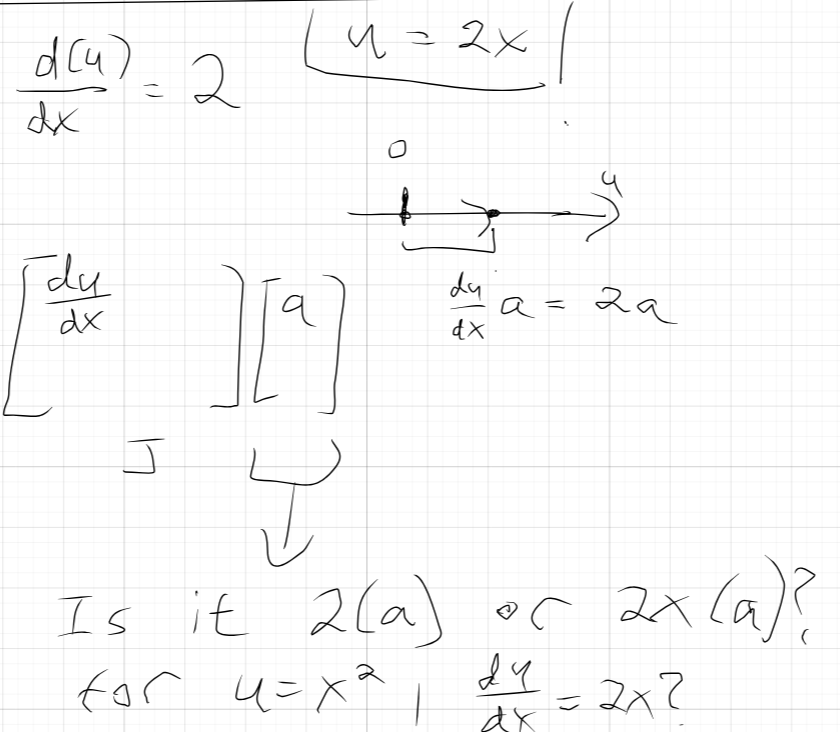 d(u)/dx = 2
u = 2x
0
u
[du/dx] [a]
du/dx a = 2a
J
Is it 2(a) or 2x(a)?
for u = x², du/dx = 2x?